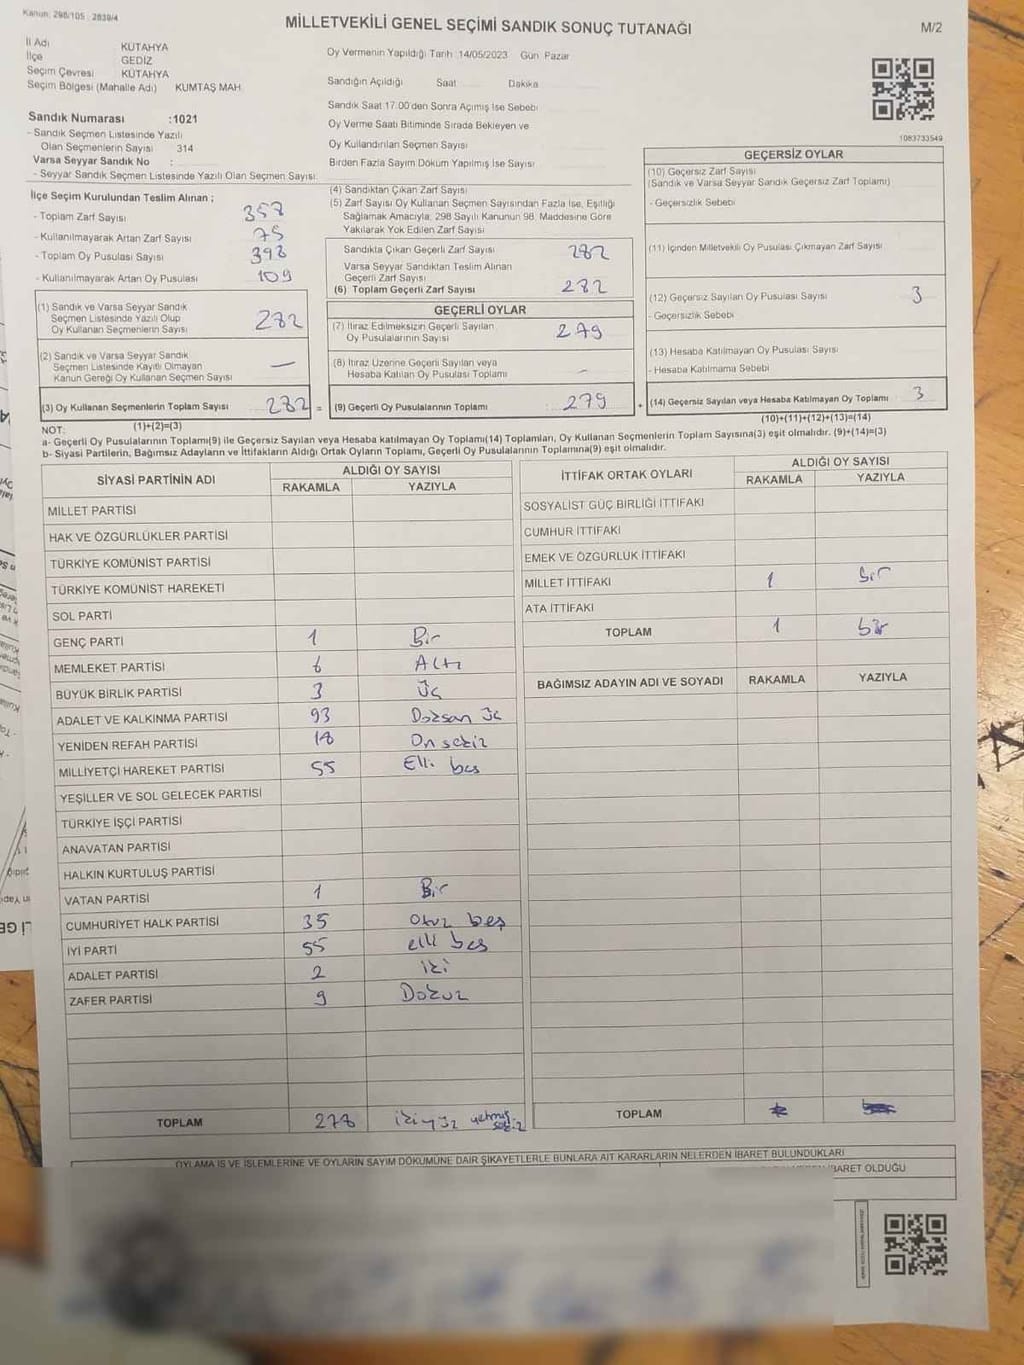 Kanun: 298/105 : 2839/4
MİLLETVEKİLİ GENEL SEÇİMİ SANDIK SONUÇ TUTANAĞI
M/2
İl Adı KÜTAHYA
İlçe GEDİZ
Seçim Çevresi KÜTAHYA
Seçim Bölgesi (Mahalle Adı) KUMTAŞ MAH.
Oy Vermenin Yapıldığı Tarih :14/05/2023 Gün: Pazar
Sandığın Açıldığı Saat Dakika
Sandık Saat 17.00'den Sonra Açılmış İse Sebebi
Oy Verme Saati Bitiminde Sırada Bekleyen ve
Oy Kullandırılan Seçmen Sayısı
Birden Fazla Sayım Döküm Yapılmış İse Sayısı
1083733549
Sandık Numarası :1021
- Sandık Seçmen Listesinde Yazılı
Olan Seçmenlerin Sayısı 314
Varsa Seyyar Sandık No :
- Seyyar Sandık Seçmen Listesinde Yazılı Olan Seçmen Sayısı:
İlçe Seçim Kurulundan Teslim Alınan ;
- Toplam Zarf Sayısı 357
- Kullanılmayarak Artan Zarf Sayısı 75
- Toplam Oy Pusulası Sayısı 398
- Kullanılmayarak Artan Oy Pusulası 109
(1) Sandık ve Varsa Seyyar Sandık
Seçmen Listesinde Yazılı Olup
Oy Kullanan Seçmenlerin Sayısı 282
(2) Sandık ve Varsa Seyyar Sandık
Seçmen Listesinde Kayıtlı Olmayan
Kanun Gereği Oy Kullanan Seçmen Sayısı —
(3) Oy Kullanan Seçmenlerin Toplam Sayısı 282 =
(1)+(2)=(3)
(4) Sandıktan Çıkan Zarf Sayısı
(5) Zarf Sayısı Oy Kullanan Seçmen Sayısından Fazla İse, Eşitliği
Sağlamak Amacıyla; 298 Sayılı Kanunun 98. Maddesine Göre
Yakılarak Yok Edilen Zarf Sayısı
Sandıkta Çıkan Geçerli Zarf Sayısı 282
Varsa Seyyar Sandıktan Teslim Alınan
Geçerli Zarf Sayısı
(6) Toplam Geçerli Zarf Sayısı 282
GEÇERLİ OYLAR
(7) İtiraz Edilmeksizin Geçerli Sayılan
Oy Pusulalarının Sayısı 279
(8) İtiraz Üzerine Geçerli Sayılan veya
Hesaba Katılan Oy Pusulası Toplamı –
(9) Geçerli Oy Pusulalarının Toplamı : 279 +
GEÇERSİZ OYLAR
(10) Geçersiz Zarf Sayısı
(Sandık ve Varsa Seyyar Sandık Geçersiz Zarf Toplamı)
- Geçersizlik Sebebi
(11) İçinden Milletvekili Oy Pusulası Çıkmayan Zarf Sayısı
(12) Geçersiz Sayılan Oy Pusulası Sayısı 3
- Geçersizlik Sebebi
(13) Hesaba Katılmayan Oy Pusulası Sayısı
- Hesaba Katılmama Sebebi
(14) Geçersiz Sayılan veya Hesaba Katılmayan Oy Toplamı 3
(10)+(11)+(12)+(13)=(14)
NOT:
a- Geçerli Oy Pusulalarının Toplamı(9) ile Geçersiz Sayılan veya Hesaba katılmayan Oy Toplamı(14) Toplamları, Oy Kullanan Seçmenlerin Toplam Sayısına(3) eşit olmalıdır. (9)+(14)=(3)
b- Siyasi Partilerin, Bağımsız Adayların ve İttifakların Aldığı Ortak Oyların Toplamı, Geçerli Oy Pusulalarının Toplamına(9) eşit olmalıdır.
SİYASİ PARTİNİN ADI
ALDIĞI OY SAYISI
RAKAMLA YAZIYLA
MİLLET PARTİSİ
HAK VE ÖZGÜRLÜKLER PARTİSİ
TÜRKİYE KOMÜNİST PARTİSİ
TÜRKİYE KOMÜNİST HAREKETİ
SOL PARTİ
GENÇ PARTİ 1 Bir
MEMLEKET PARTİSİ 6 Altı
BÜYÜK BİRLİK PARTİSİ 3 Üç
ADALET VE KALKINMA PARTİSİ 93 Doksan üç
YENİDEN REFAH PARTİSİ 18 On sekiz
MİLLİYETÇİ HAREKET PARTİSİ 55 Elli beş
YEŞİLLER VE SOL GELECEK PARTİSİ
TÜRKİYE İŞÇİ PARTİSİ
ANAVATAN PARTİSİ
HALKIN KURTULUŞ PARTİSİ
VATAN PARTİSİ 1 Bir
CUMHURİYET HALK PARTİSİ 35 Otuz beş
İYİ PARTİ 55 elli beş
ADALET PARTİSİ 2 iki
ZAFER PARTİSİ 9 Dokuz
TOPLAM 278 ikiyüz yetmiş sekiz
İTTİFAK ORTAK OYLARI
ALDIĞI OY SAYISI
RAKAMLA YAZIYLA
SOSYALİST GÜÇ BİRLİĞİ İTTİFAKI
CUMHUR İTTİFAKI
EMEK VE ÖZGÜRLÜK İTTİFAKI
MİLLET İTTİFAKI 1 bir
ATA İTTİFAKI
TOPLAM 1 bir
BAĞIMSIZ ADAYIN ADI VE SOYADI RAKAMLA YAZIYLA
TOPLAM
OYLAMA İŞ VE İŞLEMLERİNE VE OYLARIN SAYIM DÖKÜMÜNE DAİR ŞİKAYETLERLE BUNLARA AİT KARARLARIN NELERDEN İBARET BULUNDUKLARI
İBARET OLDUĞU